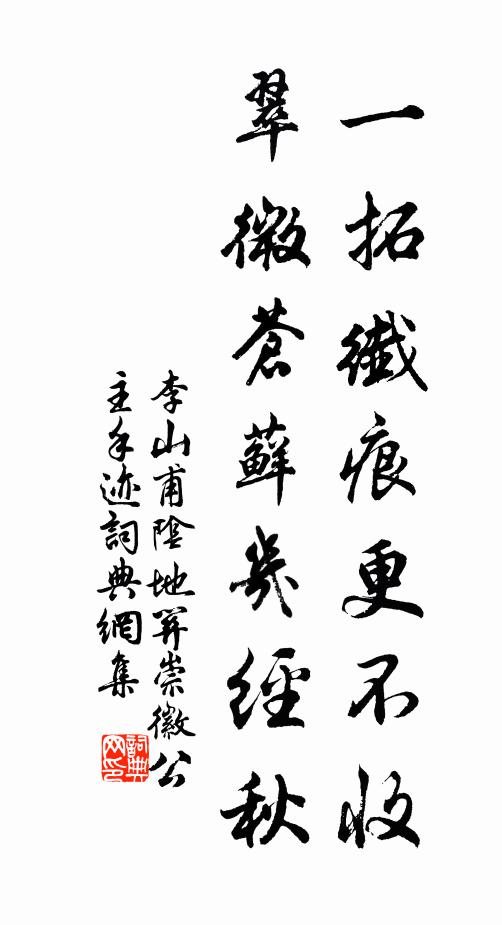 一拓纖痕更不收
翠微蒼蘚幾經秋
李山甫陰地關崇徽公
主手迹詞典網集
詞典
网印